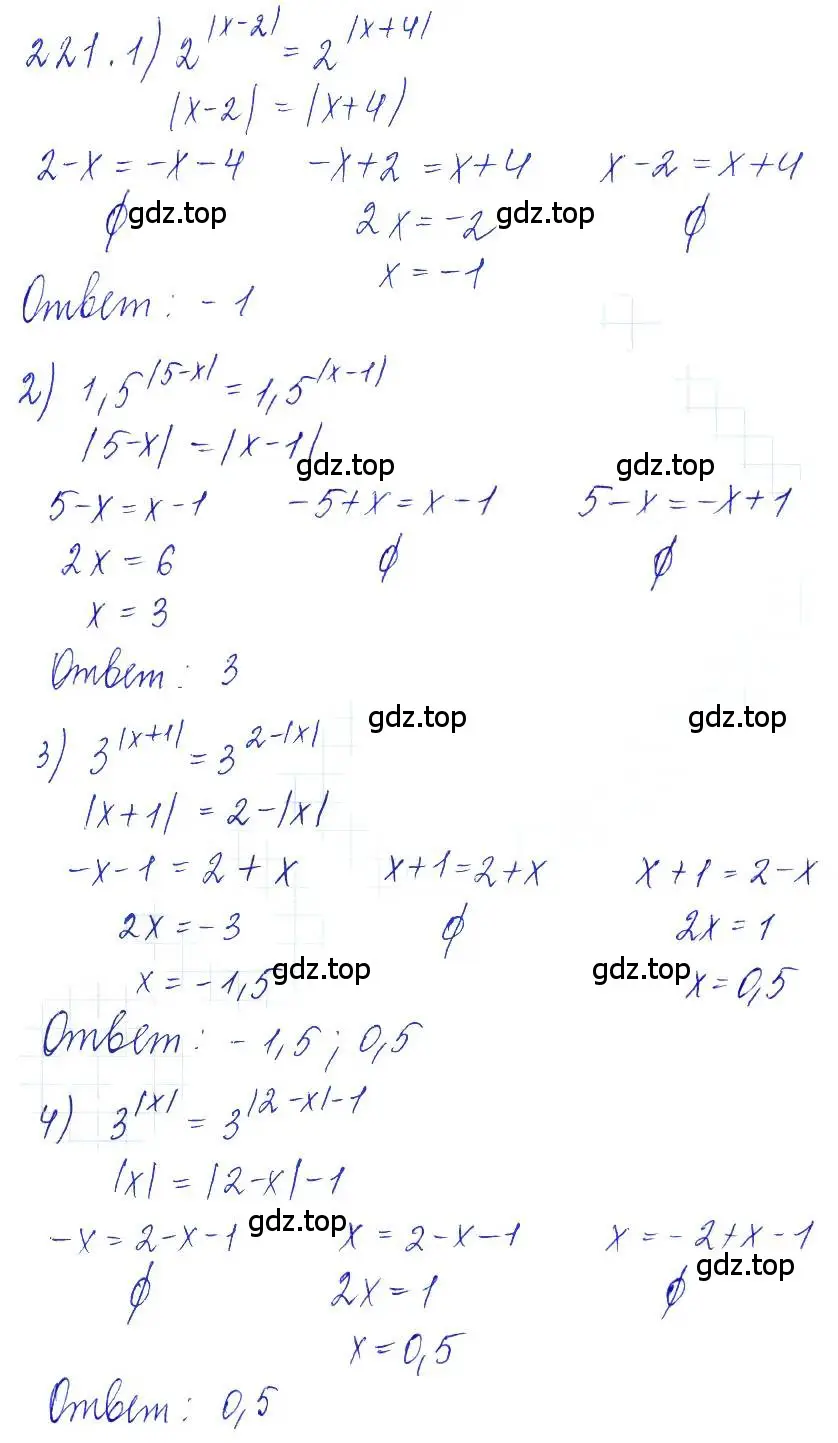 221. 1) 2^|x-2| = 2^|x+4|
|x-2| = |x+4|
2-x = -x-4    -x+2 = x+4    x-2 = x+4
∅ gdz.top    2x = -2 gdz.top    ∅
x = -1
Ответ: -1
2) 1,5^|5-x| = 1,5^|x-1|
|5-x| = |x-1|
gdz.top    gdz.top
5-x = x-1    -5+x = x-1    5-x = -x+1
2x = 6    ∅    ∅
x = 3
Ответ: 3
gdz.top    gdz.top
3) 3^|x+1| = 3^2-|x|
|x+1| = 2-|x|
-x-1 = 2+x    x+1 = 2+x    x+1 = 2-x
2x = -3    ∅    2x = 1
x = -1,5 gdz.top    gdz.top x = 0,5
Ответ: -1,5; 0,5
4) 3^|x| = 3^|2-x|-1
|x| = |2-x|-1
-x = 2-x-1 gdz.top x = 2-x-1    x = -2+x-1
∅    2x = 1    ∅ gdz.top
x = 0,5
Ответ: 0,5